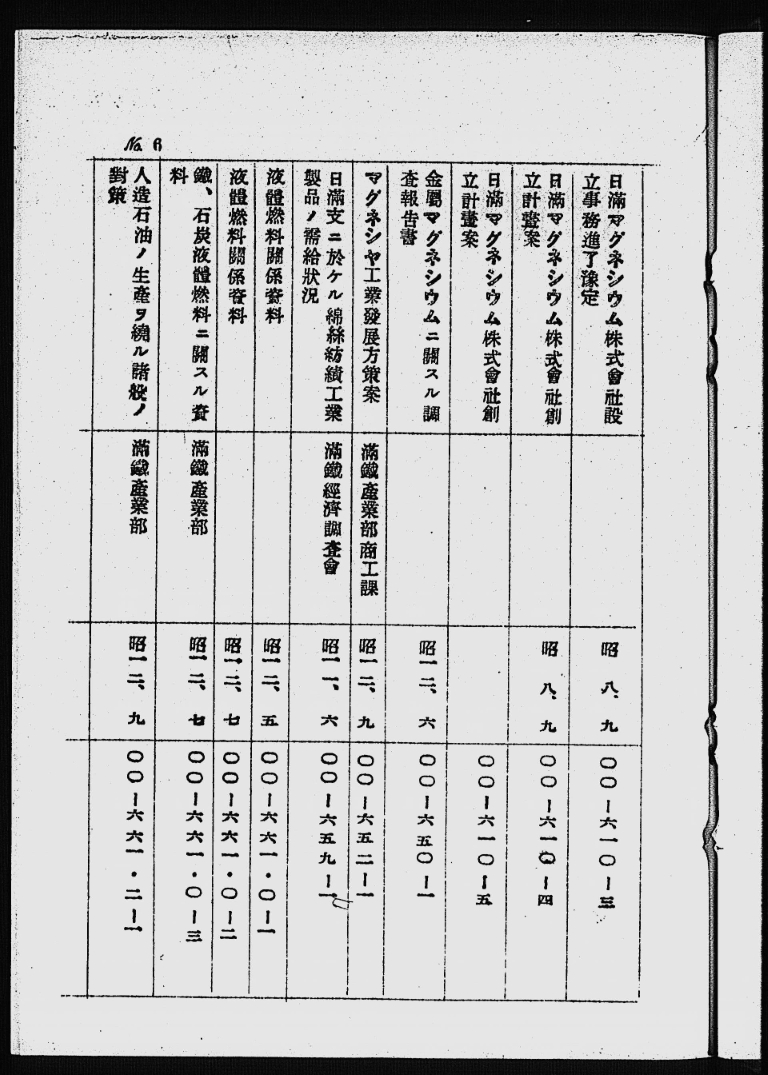 No. 6
日滿マグネシウム株式會社設
立事務進了豫定
昭 八、九
〇〇ー六一〇ー三
日滿マグネシウム株式會社創
立計畫案
昭 八、九
〇〇ー六一〇ー四
日滿マグネシウム株式會社創
立計畫案
〇〇ー六一〇ー五
金屬マグネシウムニ關スル調
査報告書
昭一二、六
〇〇ー六五〇ー一
マグネシヤ工業發展方策案
滿鐵產業部商工課
昭一二、九
〇〇ー六五二ー一
日滿支ニ於ケル綿絲紡績工業
製品ノ需給狀況
滿鐵經濟調査會
昭一一、六
〇〇ー六五九ー一
液體燃料關係資料
昭一二、五
〇〇ー六六一・〇ー一
液體燃料關係資料
昭一二、七
〇〇ー六六一・〇ー二
鐵、石炭液體燃料ニ關スル資
料
滿鐵產業部
昭一二、七
〇〇ー六六一・〇ー三
人造石油ノ生產ヲ繞ル諸般ノ
對策
滿鐵產業部
昭一二、九
〇〇ー六六一・二ー一